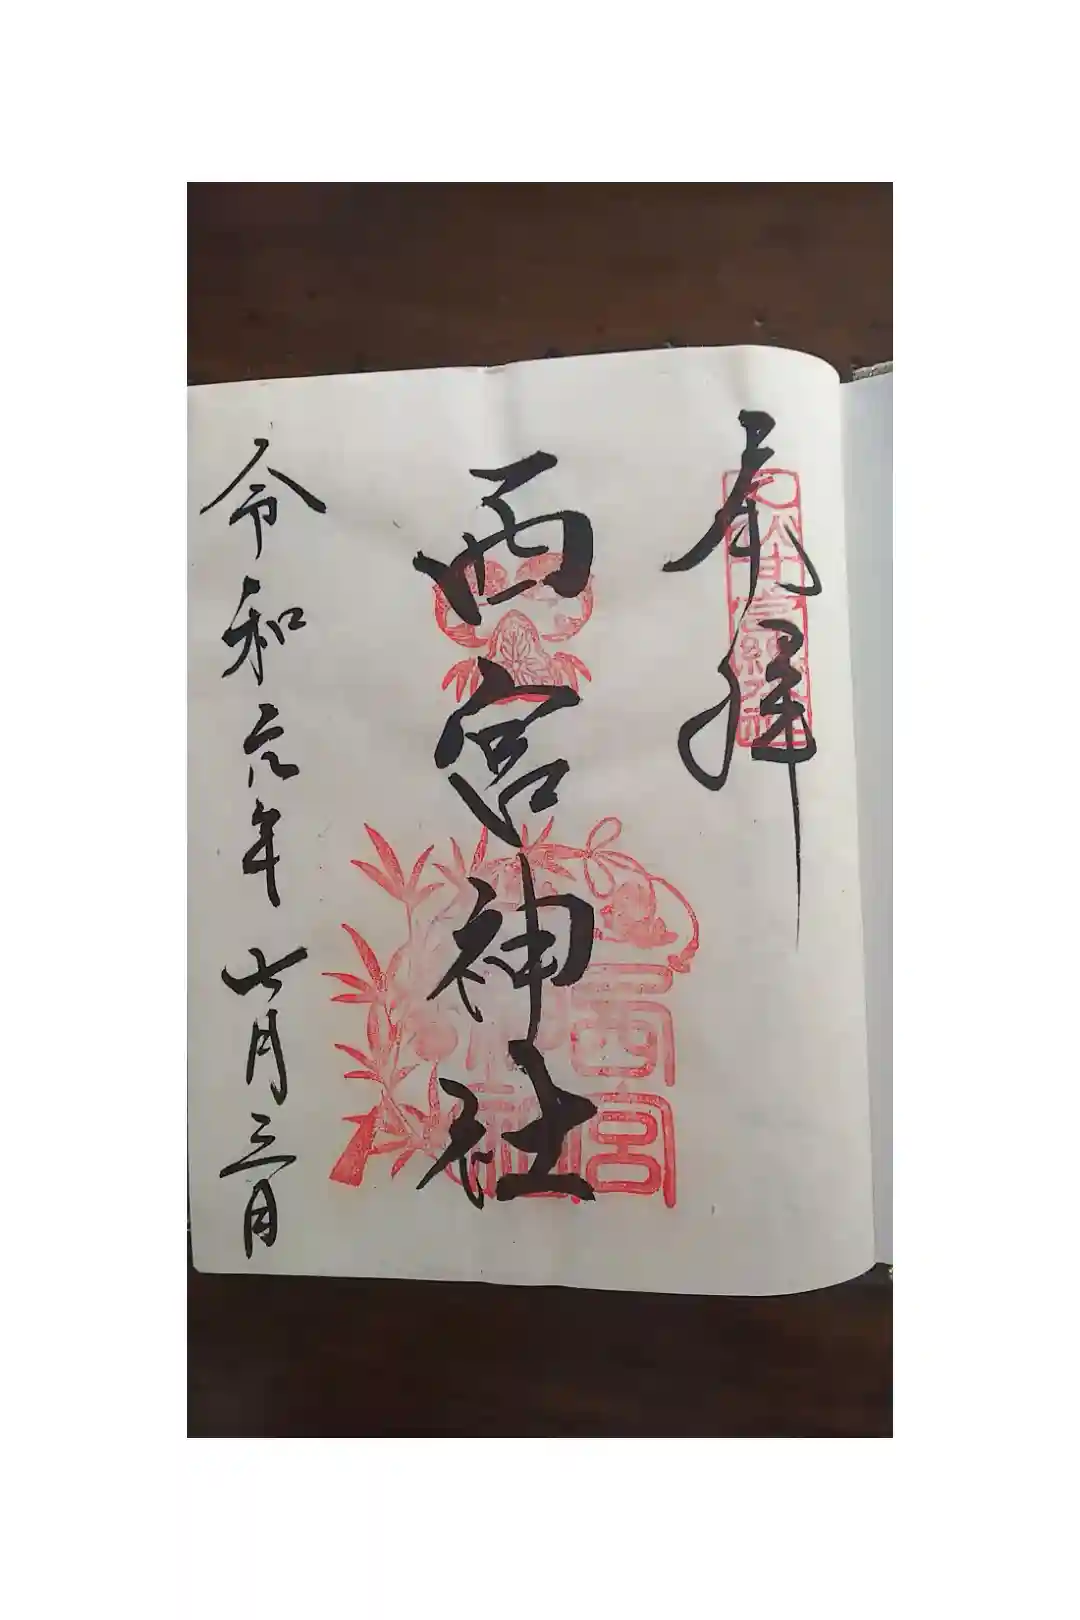 奉拝
西宮神社
令和元年七月三日
西宮
神社